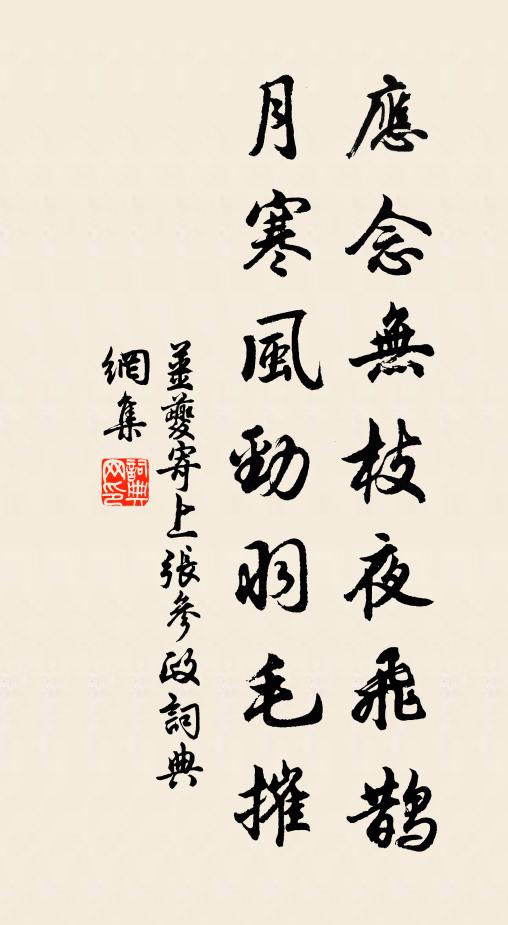 應念無枝夜飛鵲
月寒風勁羽毛摧
姜夔寄上張參政詞典
網集
詞典網印